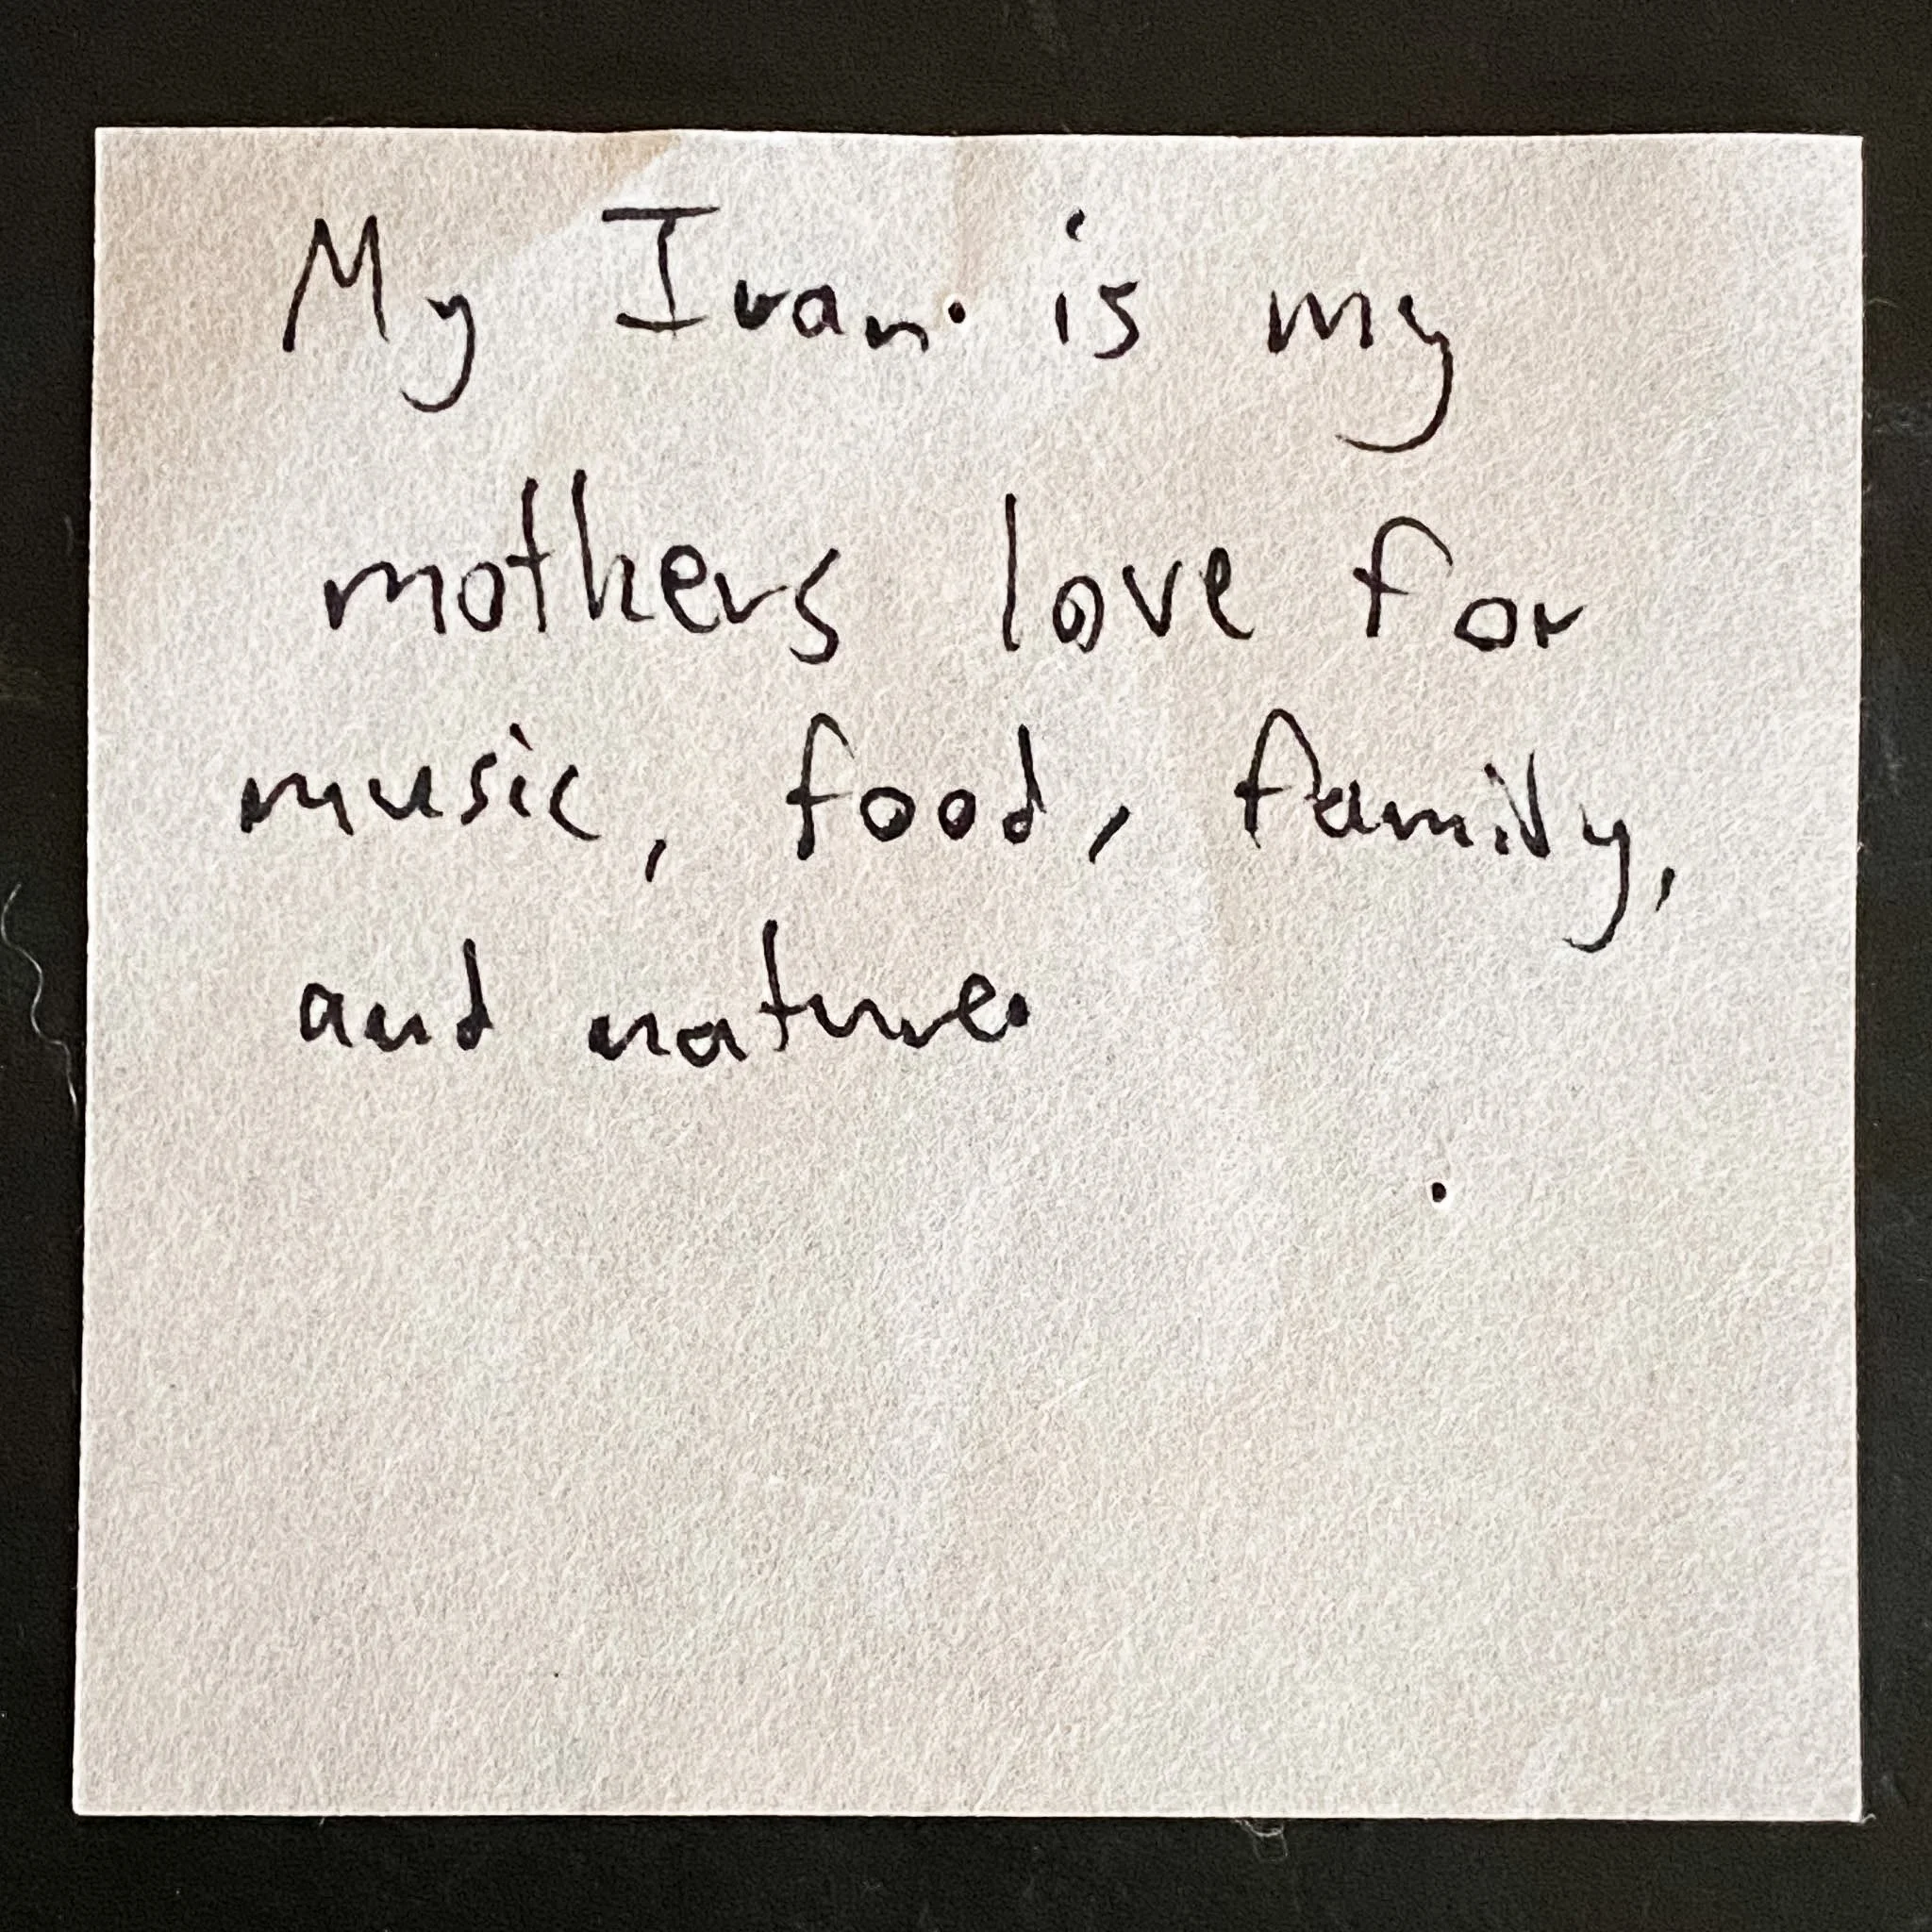 My Iran is my
mothers love for
music, food, family,
and nature.